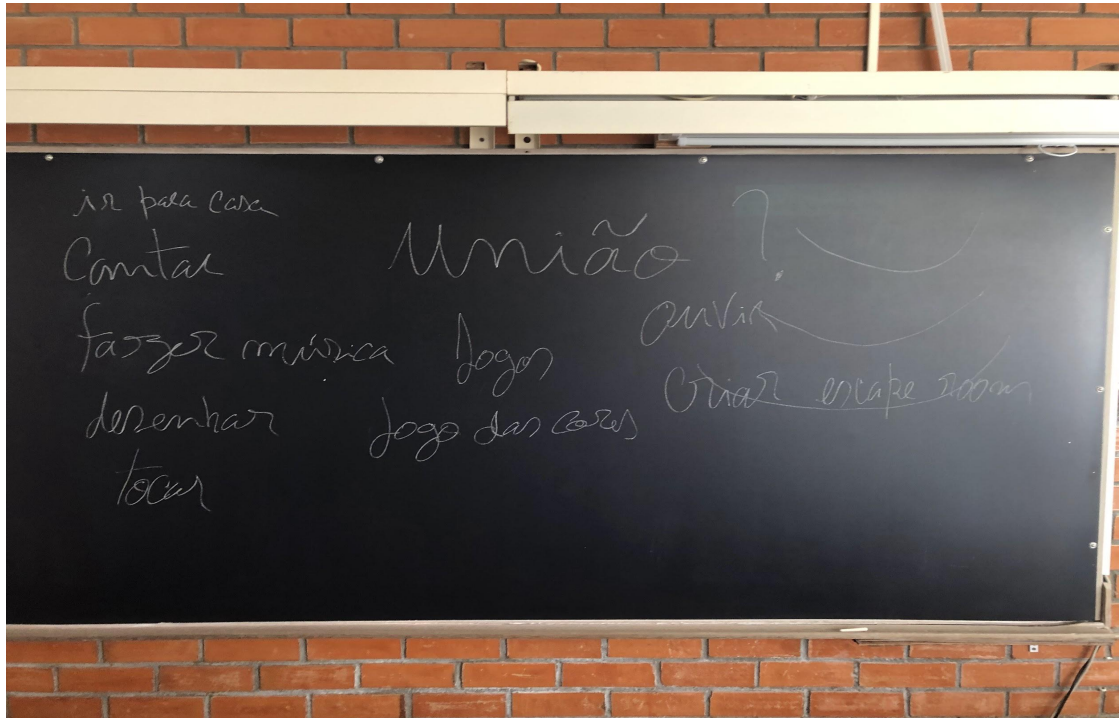 ir para casa
Cantar
fazer música
desenhar
tocar
União ?
Jogos
Jogo das cores
ouvir
Criar escape room